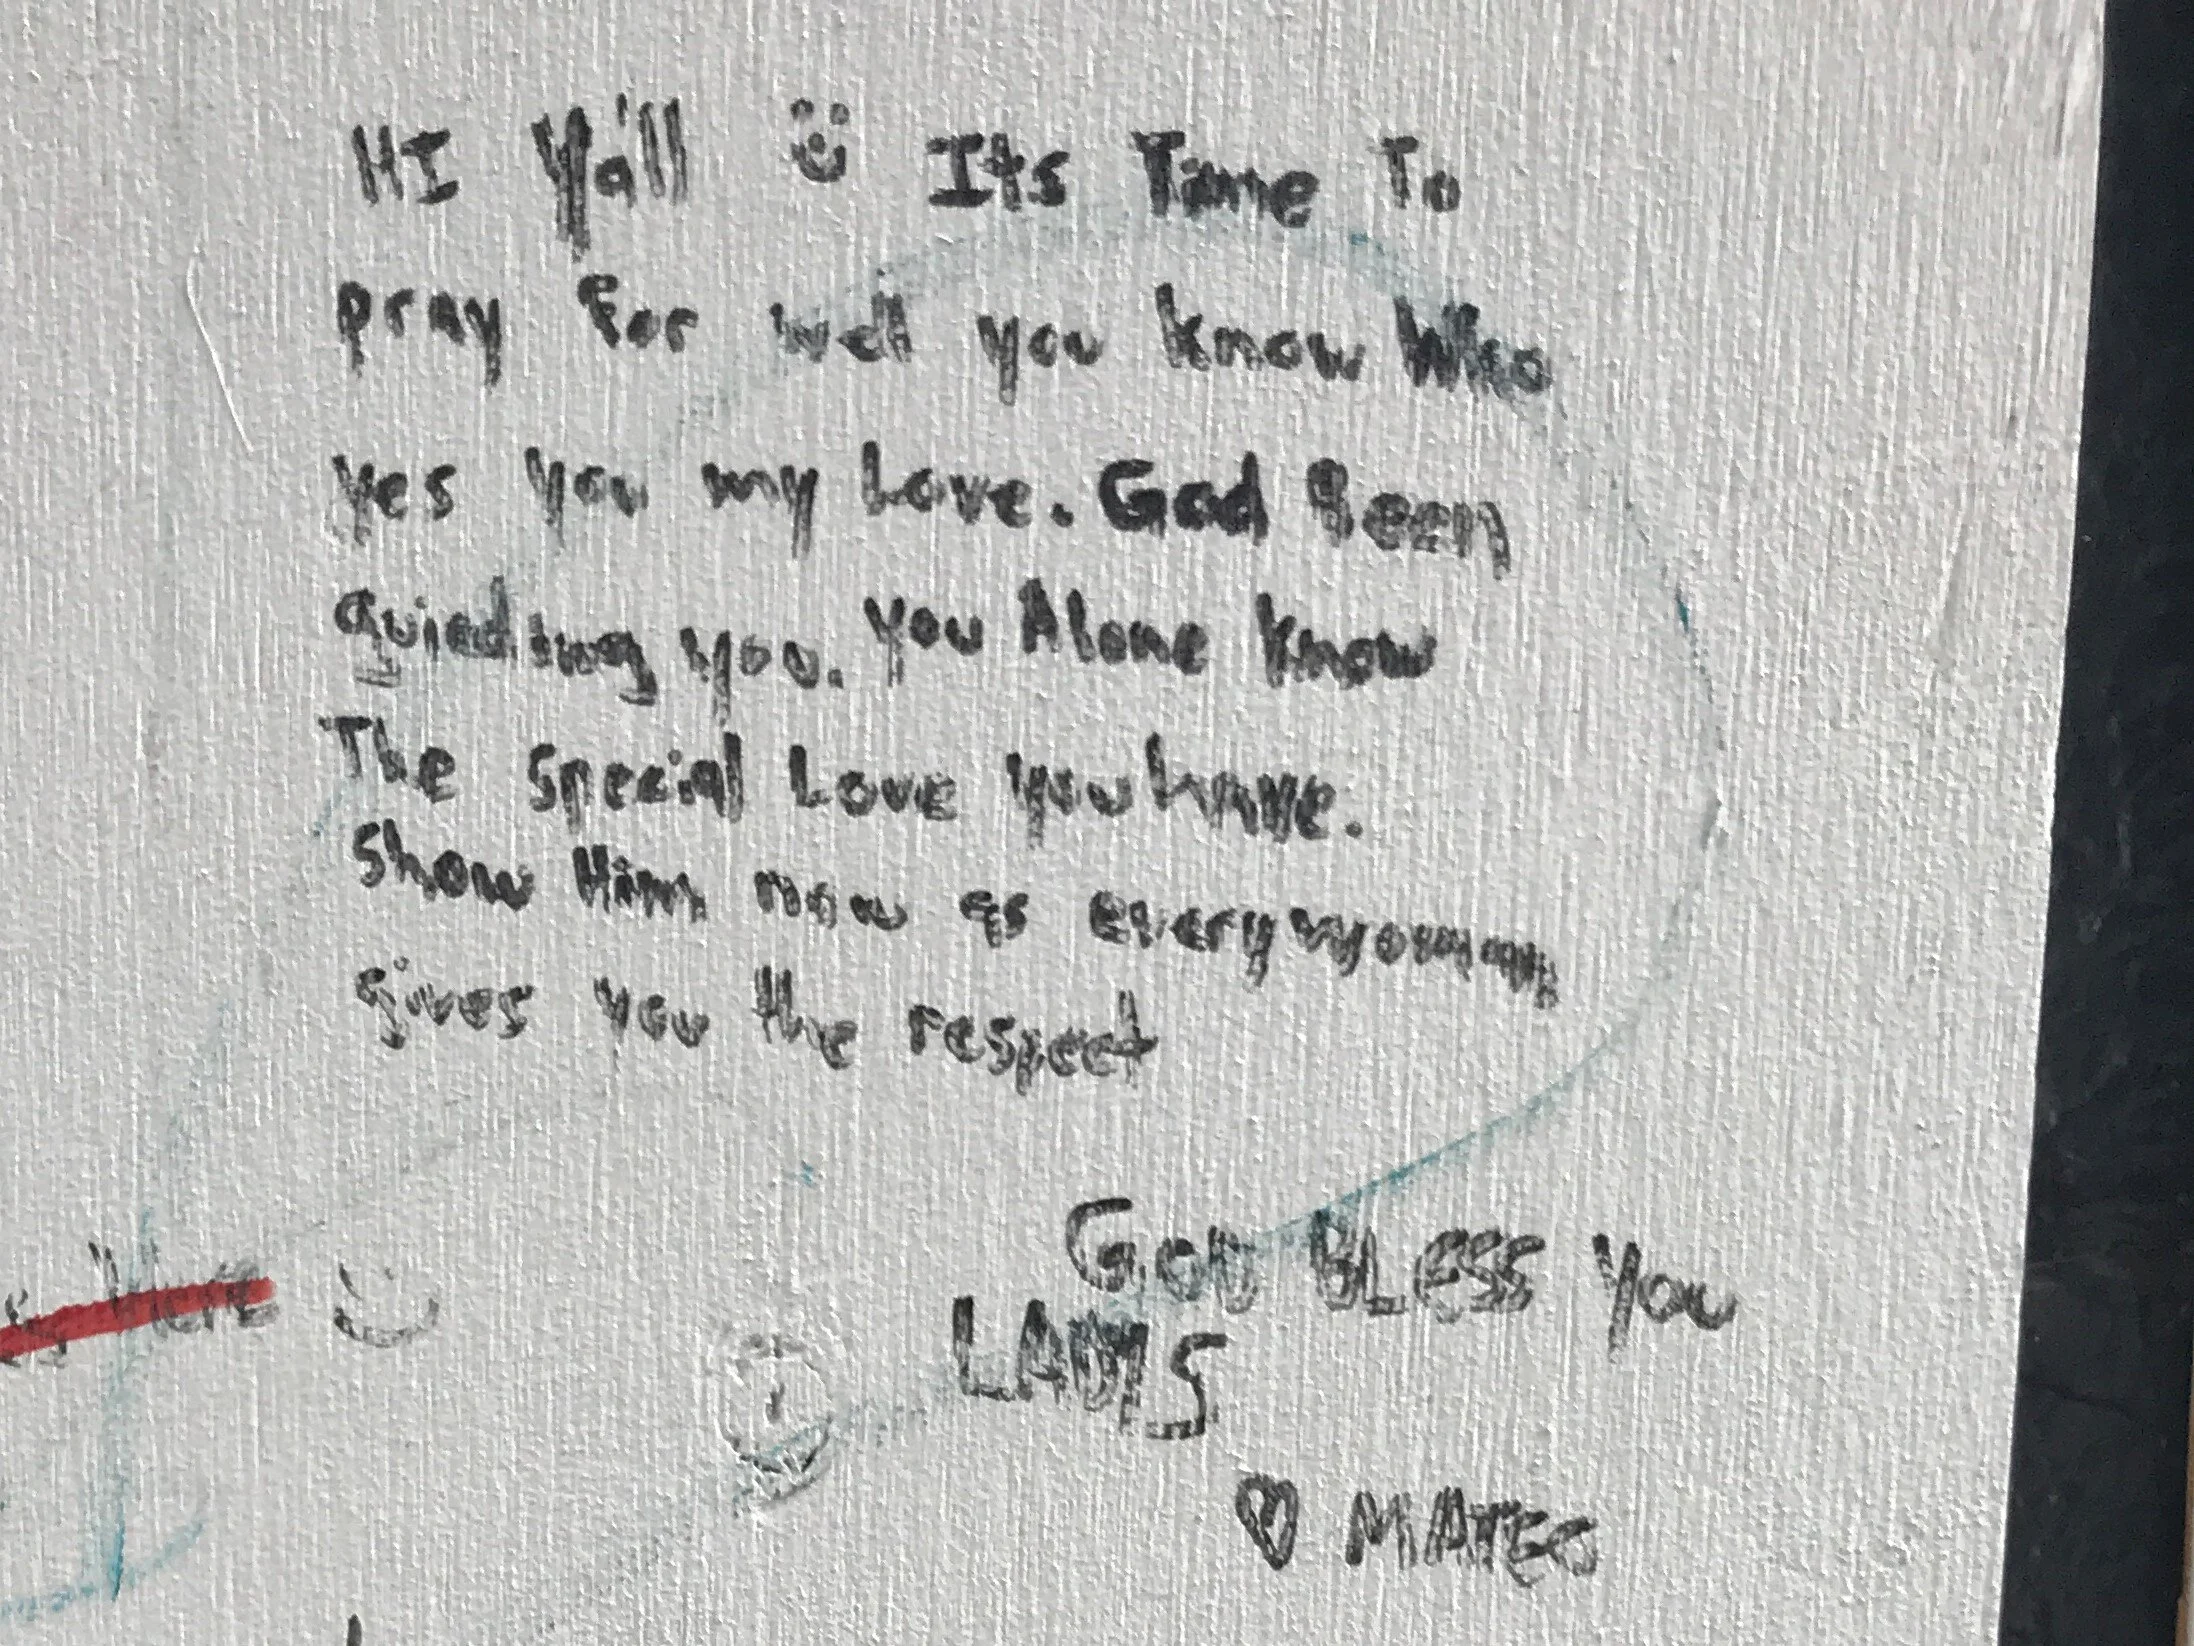 HI Ya'll Its Time To
pray for well you know Who
yes you my Love. God Been
you. You Alone Know
The special Love you have.
Show Him now as every woman
gives you the respect
God BLess You
Here
LADIS
MATEO